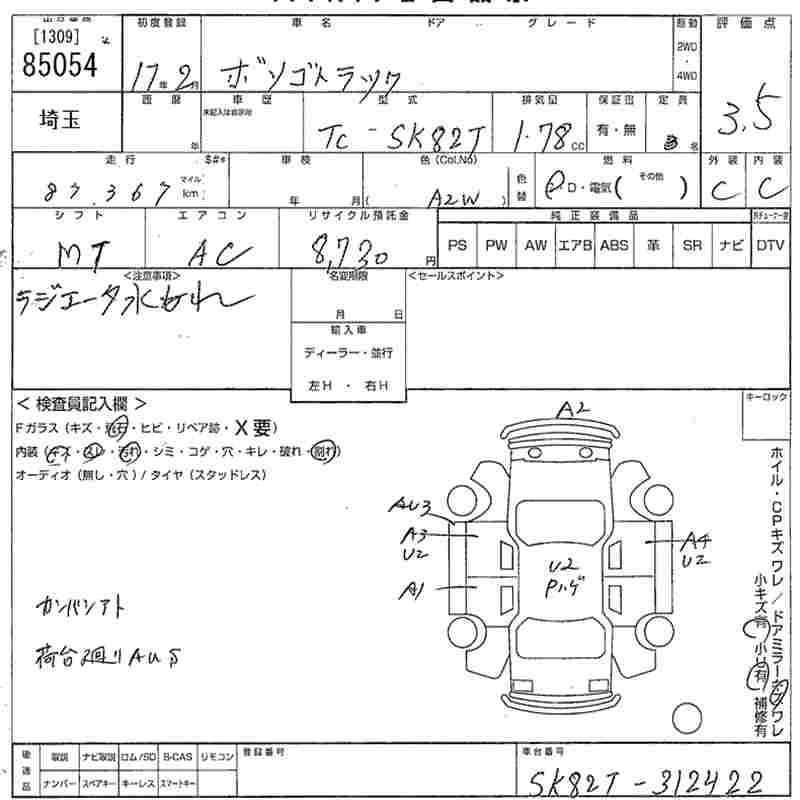 [1309]
85054
初度登録 車名 ドア グレード 駆動 評価点
17年2月 ボンゴトラック 2WD・4WD 3.5
埼玉
歴 年
車歴
未記入は自家用
型式 排気量 保証書 定員
TC-SK82T 1.78cc 有・無 3名
走行 車検 色(Col,No) 色替 燃料 外装 内装
87,367 マイル km 年 月 ( A2W ) D・電気( その他 ) C C
シフト エアコン リサイクル預託金 純正装備品
MT AC 8,730円 PS PW AW エアB ABS 革 SR ナビ DTV
<注意事項> 名変期限 <セールスポイント>
ラジエータ水もれ
月 日
輸入車
ディーラー・並行
左H ・ 右H
<検査員記入欄> キーロック
Fガラス(キズ・飛石・ヒビ・リペア跡・X要)
内装(キズ・スレ・汚れ・シミ・コゲ・穴・キレ・破れ・割れ)
オーディオ(無し・穴)/タイヤ(スタッドレス)
A2
AU3
A3
U2
A1
U2
Pハゲ
A4
U2
カンバンアト
荷台廻りAUS
ホイル・CPキズワレ/ドアミラーキズワレ
小キズ有 小U有 補修有
後送品 取説 ナビ取説 ロム/SD B-CAS リモコン 登録番号 車台番号
ナンバー スペアキー キーレス スマートキー SK82T-312422